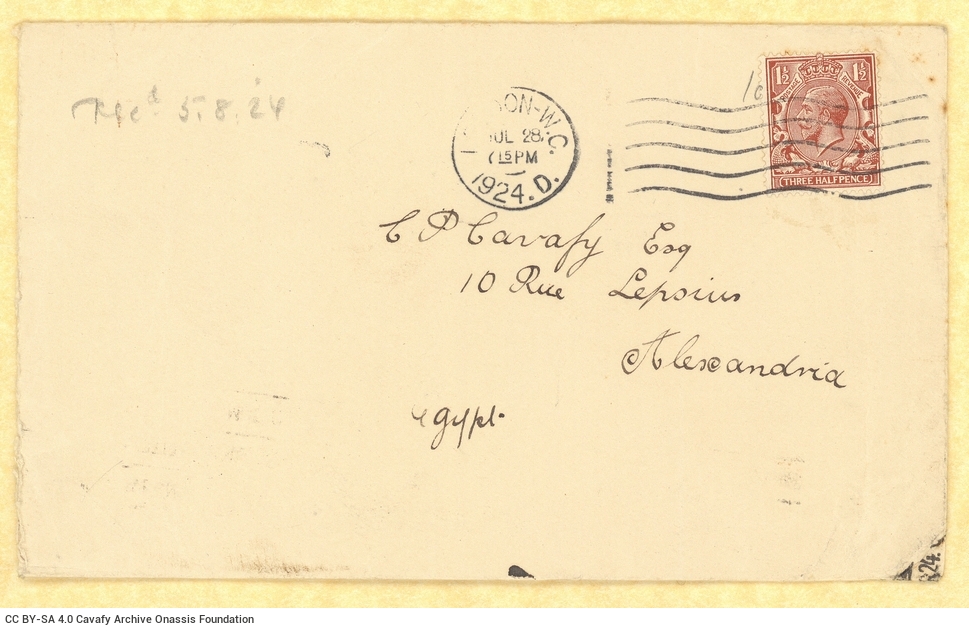 Recd 5.8.24
LONDON-W.C.
JUL 28
7 15 PM
1924. D.
1½ 1½
POSTAGE REVENUE
THREE HALFPENCE
C P Cavafy Esq
10 Rue Lepsius
Alexandria
Egypt
24.
CC BY-SA 4.0 Cavafy Archive Onassis Foundation